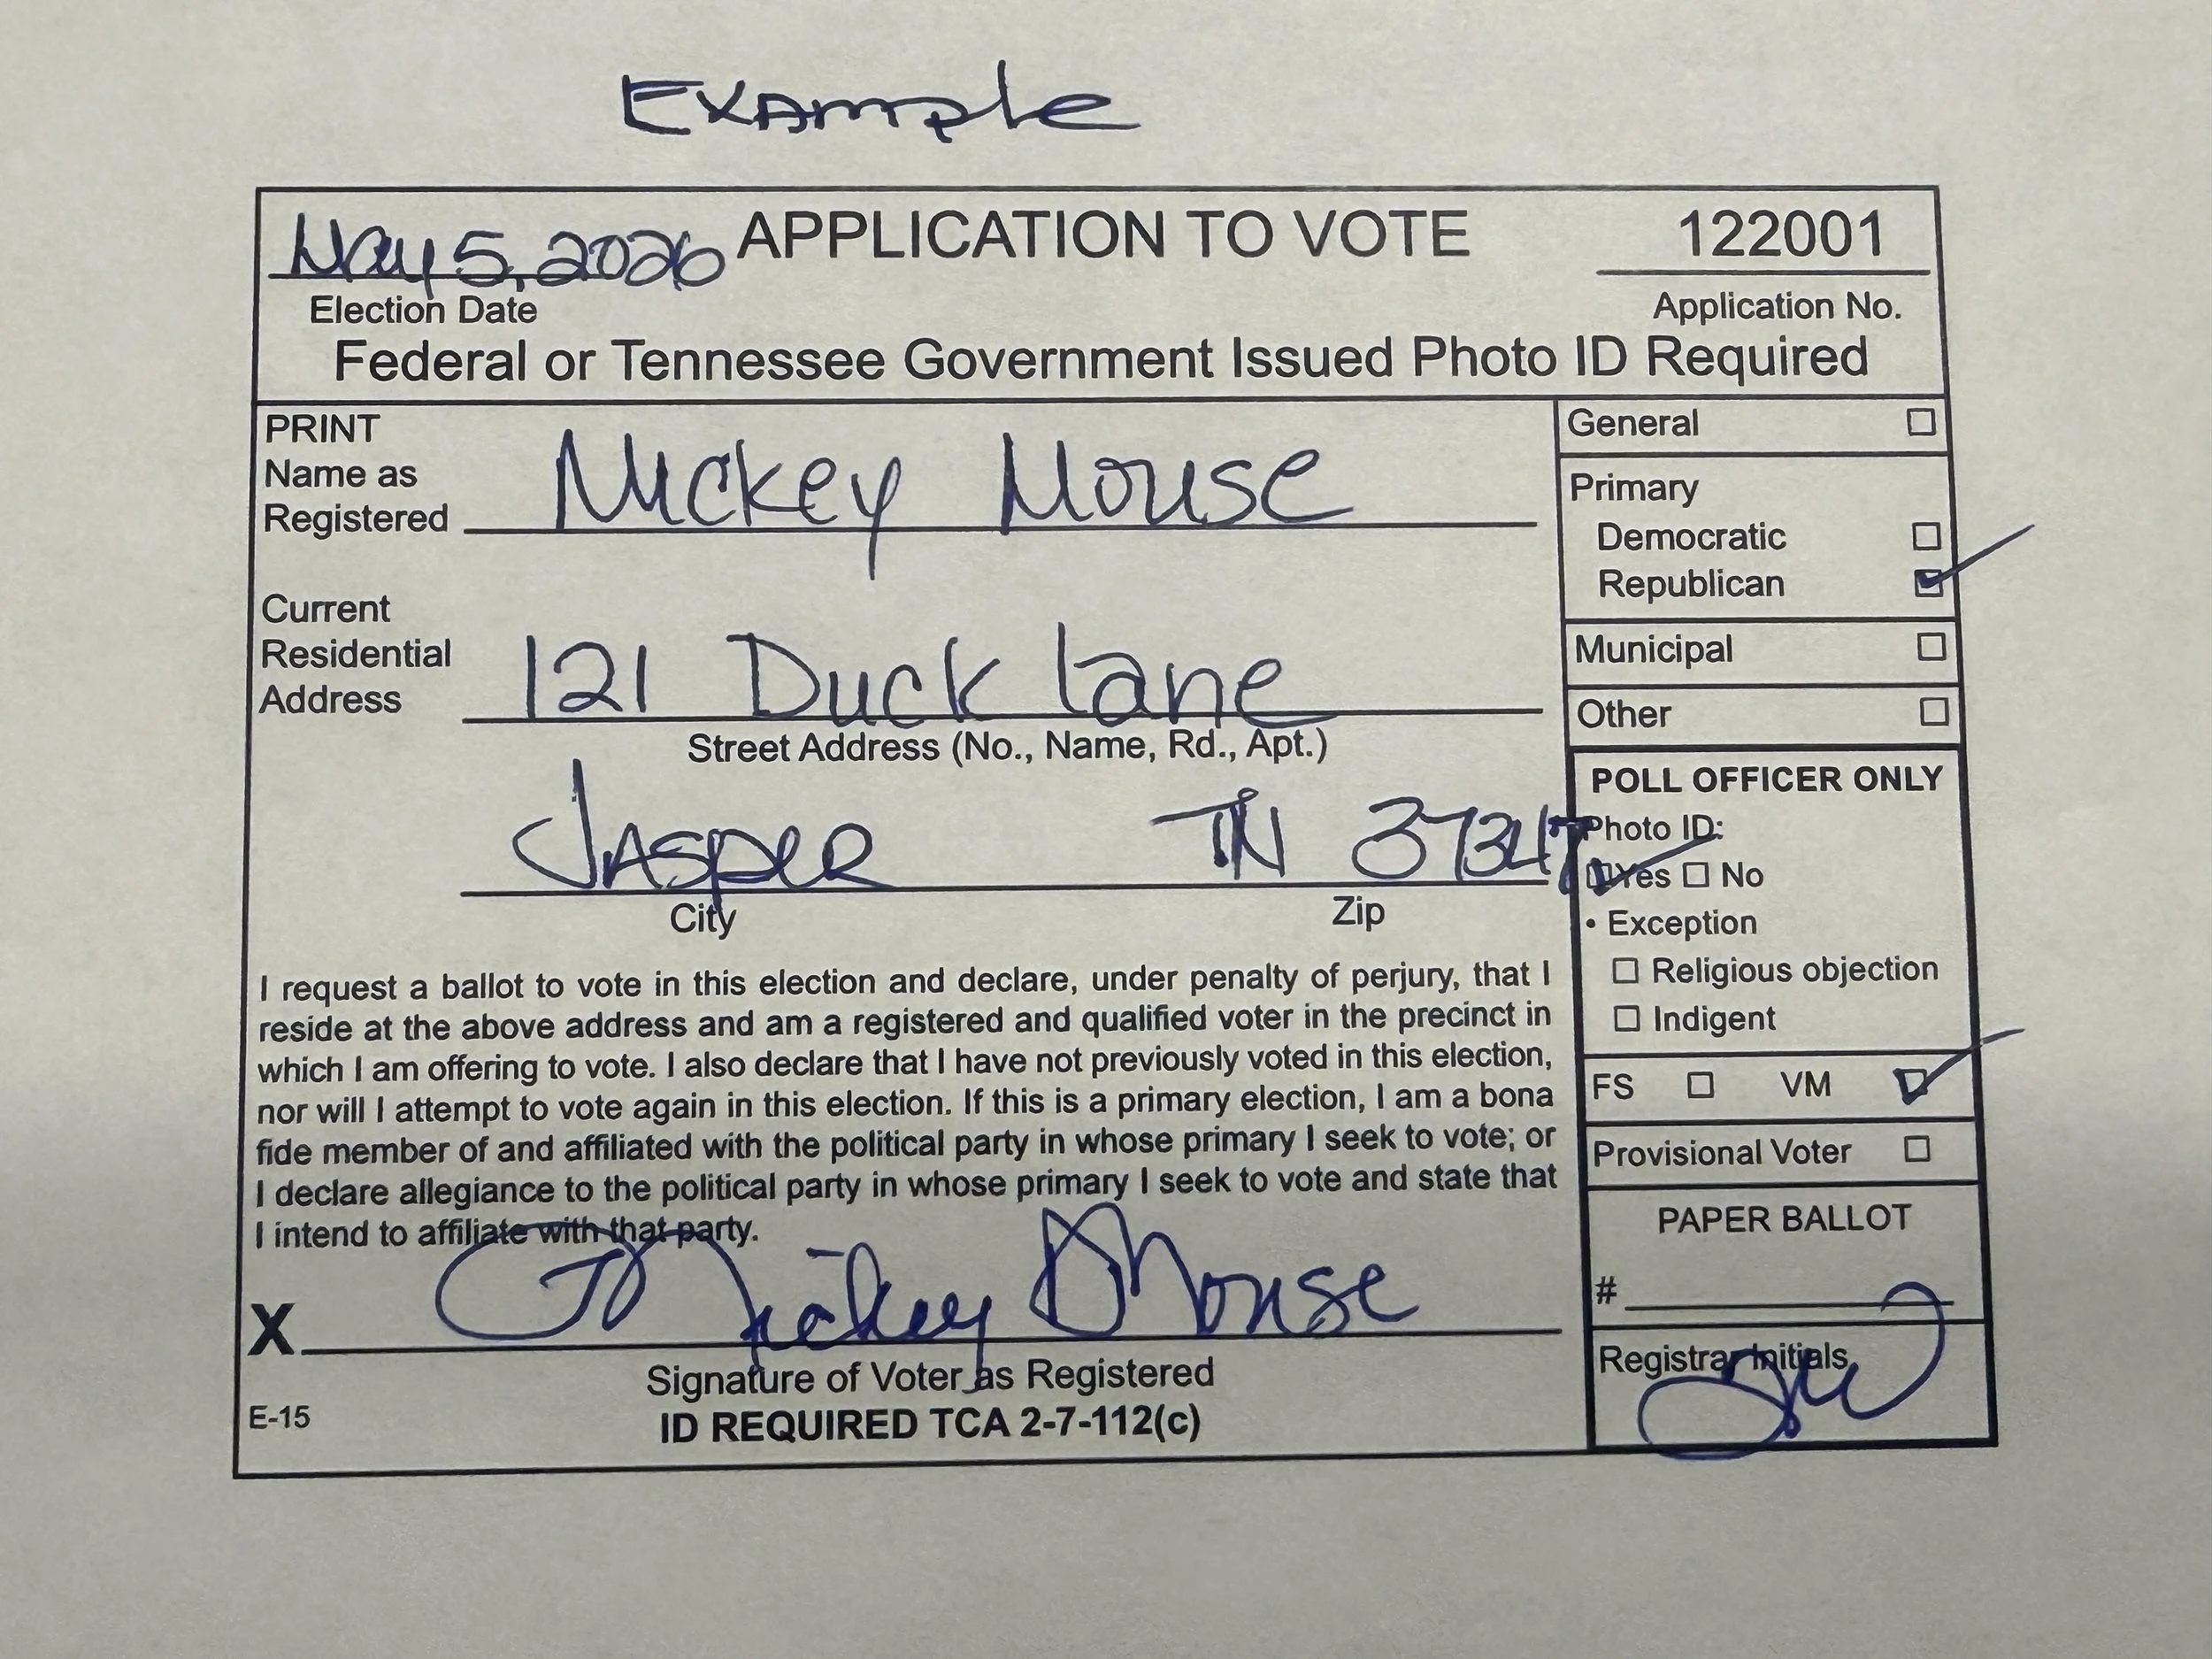 Example
May 5, 2026 APPLICATION TO VOTE 122001
Election Date Application No.
Federal or Tennessee Government Issued Photo ID Required
PRINT
Name as
Registered Mickey Mouse
Current
Residential
Address 121 Duck Lane
Street Address (No., Name, Rd., Apt.)
Jasper TN 37347
City Zip
I request a ballot to vote in this election and declare, under penalty of perjury, that I
reside at the above address and am a registered and qualified voter in the precinct in
which I am offering to vote. I also declare that I have not previously voted in this election,
nor will I attempt to vote again in this election. If this is a primary election, I am a bona
fide member of and affiliated with the political party in whose primary I seek to vote; or
I declare allegiance to the political party in whose primary I seek to vote and state that
I intend to affiliate with that party.
X Mickey Mouse
Signature of Voter as Registered
E-15 ID REQUIRED TCA 2-7-112(c)
General ☐
Primary
Democratic ☐
Republican ☑
Municipal ☐
Other ☐
POLL OFFICER ONLY
Photo ID:
☑ Yes ☐ No
• Exception
☐ Religious objection
☐ Indigent
FS ☐ VM ☑
Provisional Voter ☐
PAPER BALLOT
#
Registrar Initials